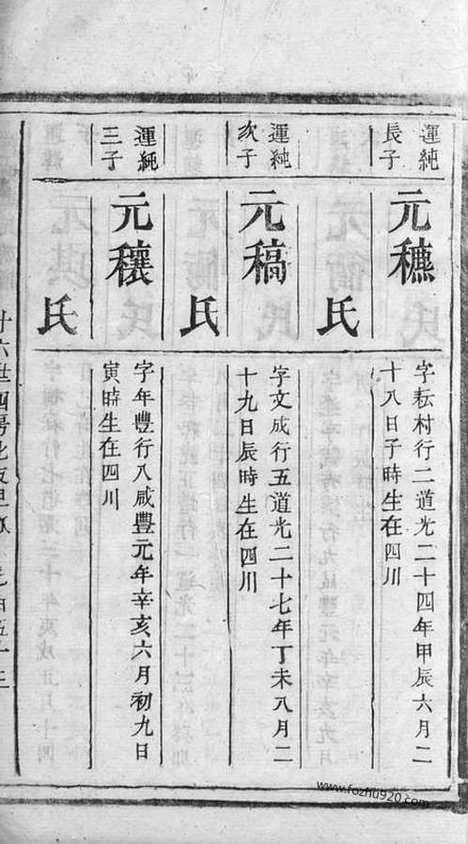 運純
長子
元穮
氏
字耘村行二道光二十四年甲辰六月二
十八日子時生在四川
運純
次子
元稿
氏
字文成行五道光二十七年丁未八月二
十九日辰時生在四川
運純
三子
元穰
氏
字年豐行八咸豐元年辛亥六月初九日
寅時生在四川
廿六世四房
www.fozhu920.com